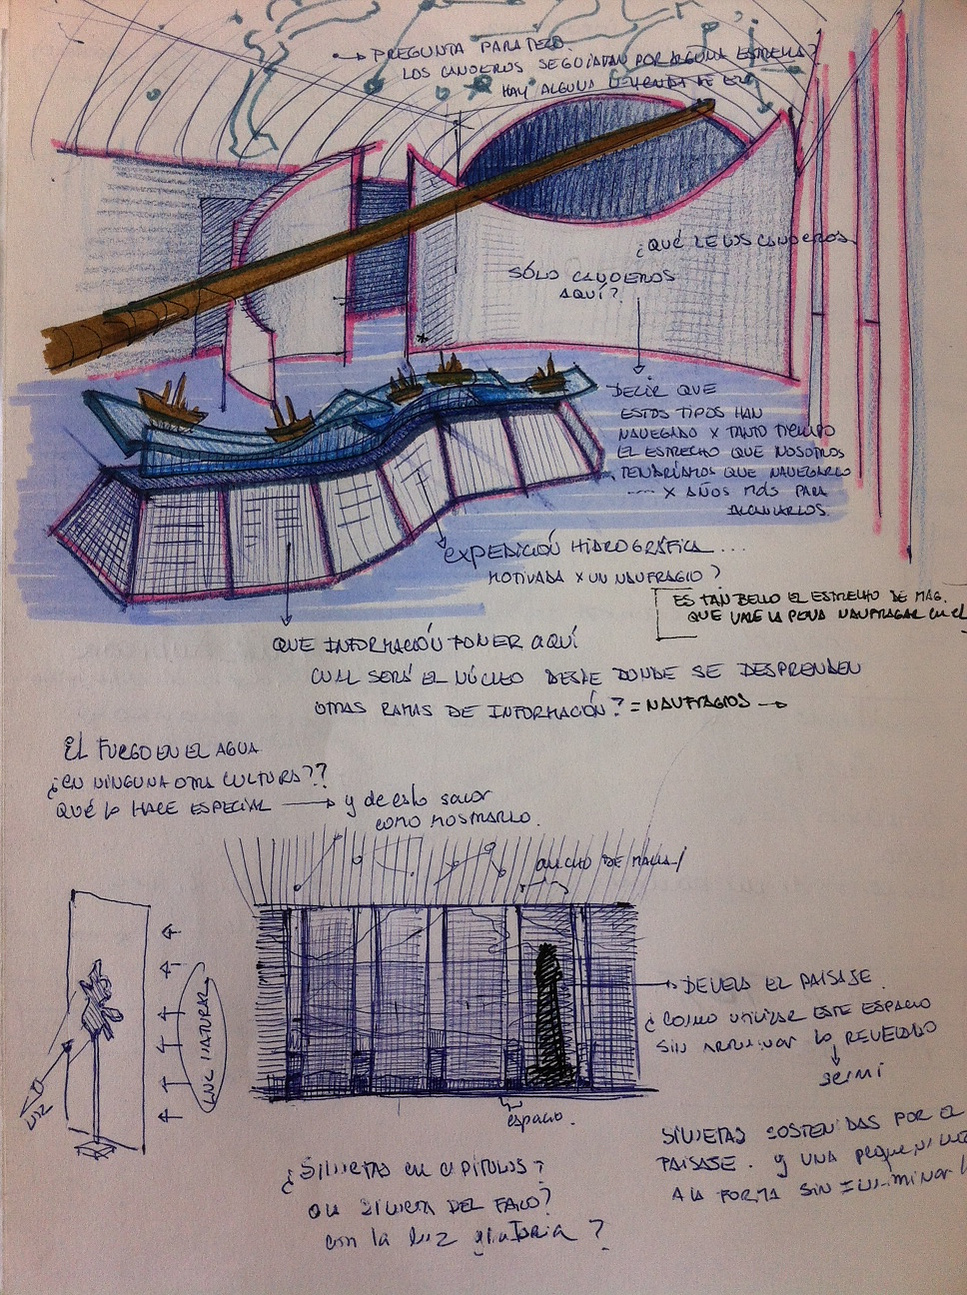 → PREGUNTA PARA TERO.
LOS CANOEROS SE GUIABAN POR ALGUNA ESTRELLA?
HAY ALGUNA LEYENDA DE ESO
¿QUÉ LE LOS CANOEROS
SÓLO CANOEROS
AQUÍ?
DECIR QUE
ESTOS TIPOS HAN
NAVEGADO X TANTO TIEMPO
EL ESTRECHO QUE NOSOTROS
TENDRÍAMOS QUE NAVEGARLO
---- X AÑOS MÁS PARA
ALCANZARLOS.
EXPEDICIÓN HIDROGRÁFICA ...
MOTIVADA X UN NAUFRAGIO?
ES TAN BELLO EL ESTRECHO DE MAG.
QUE VALE LA PENA NAUFRAGAR en él
QUE INFORMACIÓN PONER AQUÍ
CUAL SERÁ EL NÚCLEO DESDE DONDE SE DESPRENDEN
OTRAS RAMAS DE INFORMACIÓN? = NAUFRAGIOS →
EL FUEGO EN EL AGUA
¿EN NINGUNA OTRA CULTURA??
QUÉ lo HACE ESPECIAL → y de esto sacar
como mostrarlo.
ANCHO DE MALLA
LUZ NATURAL
LUZ
→ DEVELA EL PAISAJE.
¿COMO UTILIZAR ESTE ESPACIO
SIN ARRUINAR lo REVELADO
SEMI
espacio.
SILUETAS SOSTENIDAS POR EL
PAISAJE. y UNA pequeñ luz
A LA FORMA SIN ILUMINAR
¿SILUETAS en CAPITULOS?
O LA SILUETA DEL FARO?
con la luz giratoria?